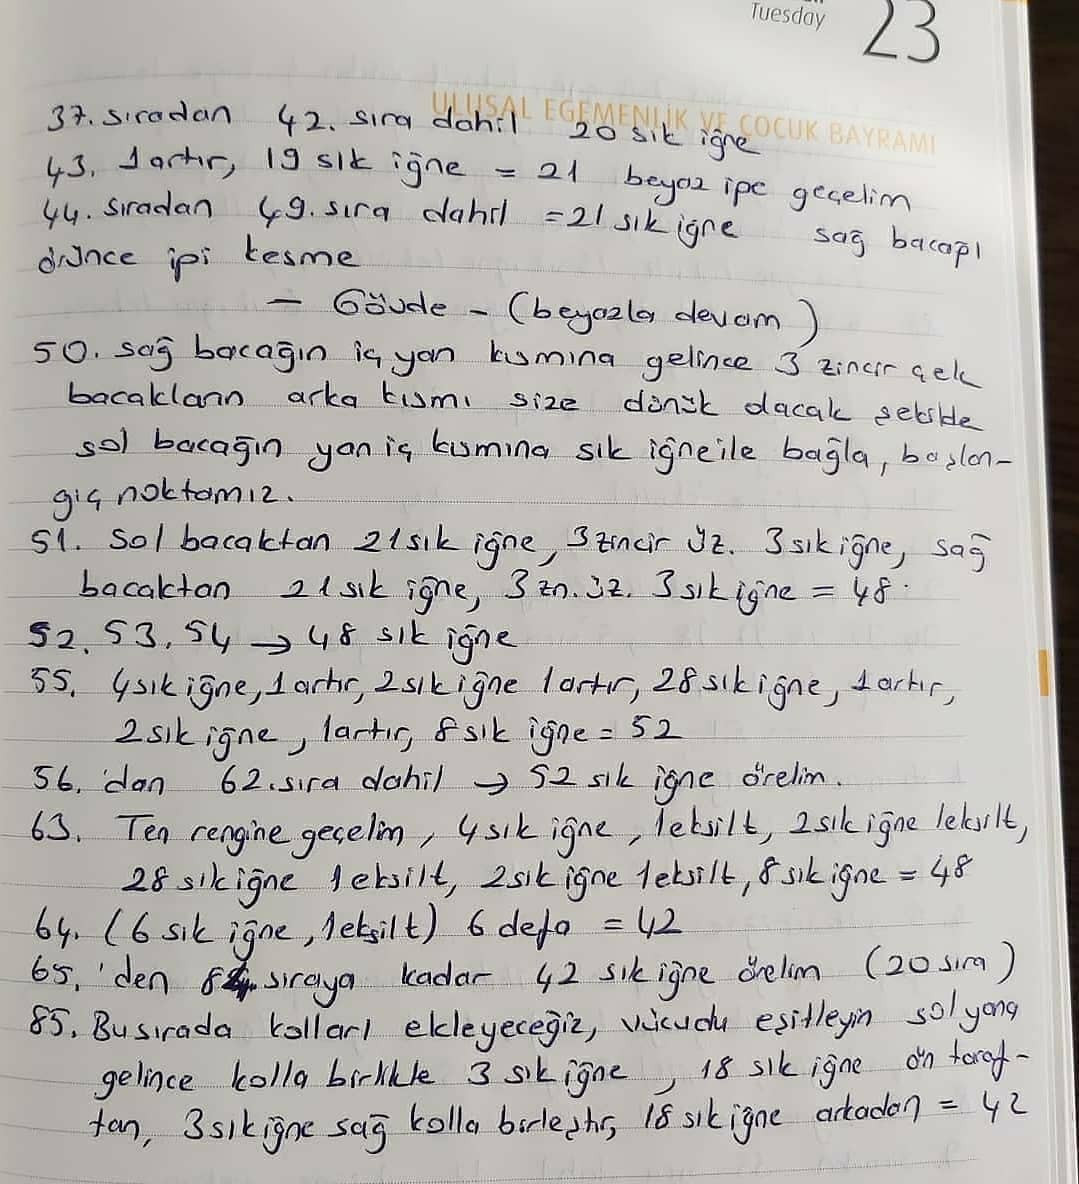 Tuesday 23
ULUSAL EGEMENLİK VE ÇOCUK BAYRAMI
37. sıradan 42. sıra dahil 20 sık iğne
43. 1 artır, 19 sık iğne = 21 beyaz ipe geçelim
44. sıradan 49. sıra dahil = 21 sık iğne sağ bacağı
örünce ipi kesme
– Gövde – (beyazla devam)
50. sağ bacağın iç yan kısmına gelince 3 zincir çek
bacakların arka kısmı size dönük olacak şekilde
sol bacağın yan iç kısmına sık iğne ile bağla, başlan-
gıç noktamız.
51. Sol bacaktan 21 sık iğne, 3 zincir üz. 3 sık iğne, sağ
bacaktan 21 sık iğne, 3 zn. üz. 3 sık iğne = 48.
52, 53, 54 → 48 sık iğne
55. 4 sık iğne, 1 artır, 2 sık iğne 1 artır, 28 sık iğne, 1 artır,
2 sık iğne, 1 artır, 8 sık iğne = 52
56. 'dan 62. sıra dahil → 52 sık iğne örelim.
63. Ten rengine geçelim, 4 sık iğne, 1 eksilt, 2 sık iğne 1 eksilt,
28 sık iğne 1 eksilt, 2 sık iğne 1 eksilt, 8 sık iğne = 48
64. (6 sık iğne, 1 eksilt) 6 defa = 42
65. 'den 84. sıraya kadar 42 sık iğne örelim (20 sıra)
85. Bu sırada kolları ekleyeceğiz, vücudu eşitleyin sol yana
gelince kolla birlikte 3 sık iğne, 18 sık iğne ön taraf-
tan, 3 sık iğne sağ kolla birleştir, 18 sık iğne arkadan = 42